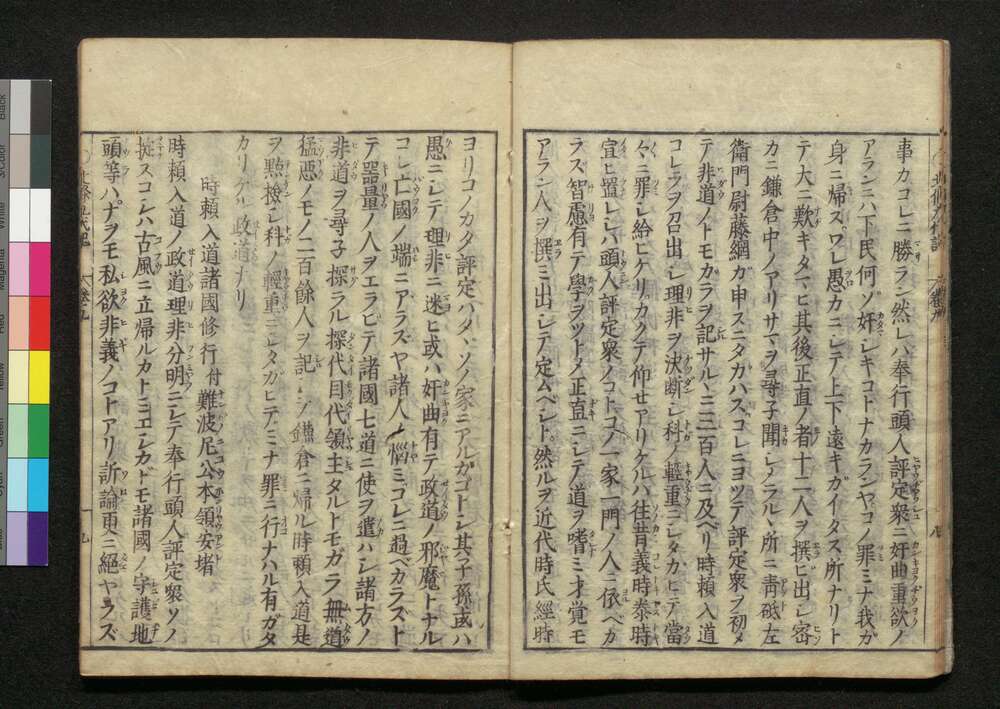 事カコレニ勝ラン然レバ奉行頭人評定衆ニ奸曲重欲ノ
アランニハ下民何ソ奸シキコトナカランヤコノ罪ミナ我ガ
身ニ帰スワレ愚カニシテ上下遠キガイタス所ナリト
テ大ニ歎キタマヒ其後正直ノ者十二人ヲ撰ビ出シ密
カニ鎌倉中ノアリサマヲ尋子聞シメラルヽ所ニ靑砥左
衛門尉藤綱カ申スニタカハズコレニヨツテ評定衆ヲ初メ
テ非道ノトモカラヲ記サルヽニ三百人ニ及ベリ時頼入道
コレラヲ召出シ理非ヲ決断シ科ノ輕重ニシタカヒテ當
々ニ罪シ給ヒケリカクテ仰セアリケルハ往昔義時泰時
宜ヒ置レシハ頭人評定衆ノコトコノ一家一門ノ人ニ依ベカ
ラズ智慮有テ學ヲツトメ正直ニシテ道ヲ嗜ミ才覚モ
アラン人ヲ撰ミ出シテ定ムベシト然ルヲ近代時氏經時
ヨリコノカタ評定ハタヽソノ家ニアルガゴトシ其子孫或ハ
愚ニシテ理非ニ迷ヒ或ハ奸曲有テ政道ノ邪魔トナル
コレ亡國ノ端ニアラズヤ諸人ノ惱ミコレニ過ベカラズト
テ噐量ノ人ヲエラビテ諸國七道ニ使ヲ遣ハシ諸方ノ
非道ヲ尋子探ラル探代目代領主タルトモガラ無道
猛悪ノモノ二百餘人ヲ記シテ鎌倉ニ帰ル時頼入道是
ヲ㸃撿シ科ノ輕重ニシタガヒテミナ罪ニ行ナハル有ガタ
カリケル政道ナリ
時頼入道諸國修行付難波尼公本領安堵
時頼入道ノ政道理非分明ニシテ奉行頭人評定衆ソノ
掟スコレハ古風ニ立帰ルカトミエシカドモ諸國ノ守護地
頭等ハナヲモ私欲非義ノコトアリ訴論甭ニ絕ヤラズ
北條九代記
卷九
九